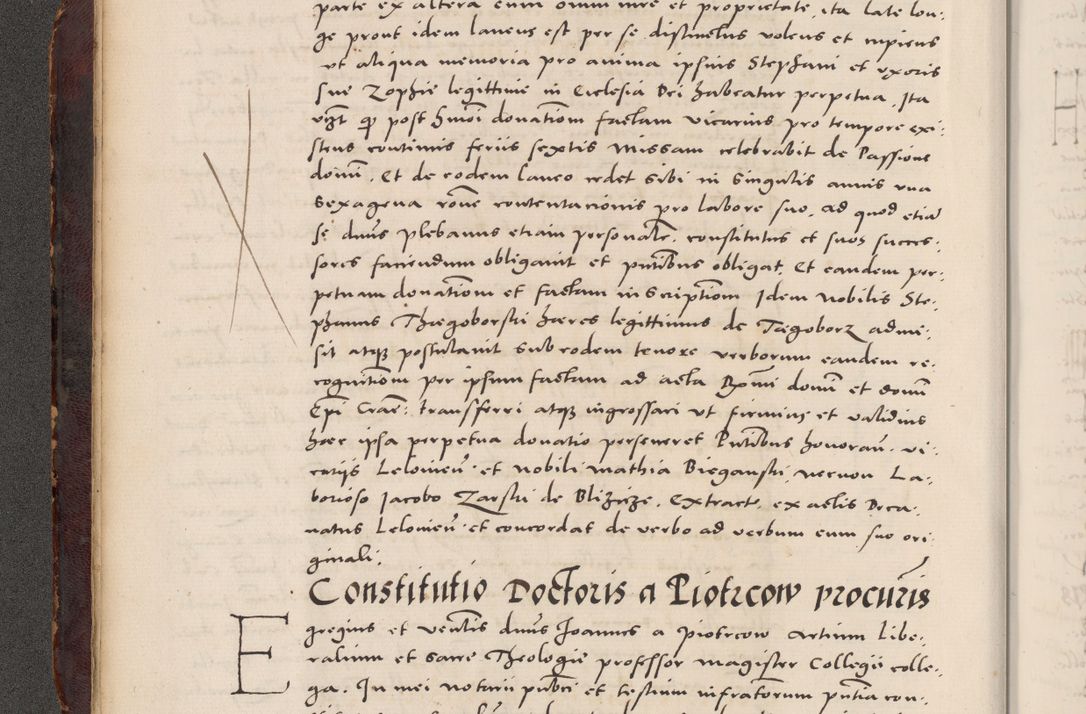 parte ex altera cum omni iure et proprietate, ita late lon:
ge prout idem laneus est per se distinctus volens et cupiens
ut aliqua memoria pro anima ipsius Stephani et uxoris
sue Zophie legittime in Ecclesia Dei habeatur perpetua, Ita
vizt qp post hmoi donatiom factam vicarius pro tempore exi:
stens continuis feriis sextis missam celebrabit de Passione
domi. Et de eodem laneo cedet sibi in singulis annis una
sexagena rone contentacionis pro labore suo, ad quod etia
se dnus plebanus etiam personalr. constitutus et suos succes:
sores faciendum obligauit et pntibus obligat. Et eandem per:
petuam donatiom et factam inscriptiom Idem nobilis Ste:
phanus Thægoborski hæres legittimus de Tægoborz admi:
sit atqz postulauit sub eodem tenore verborum eandem re:
cognitiom per ipsum factam ad acta Rxmi domi et domi
Epi Crac: transferri atqz ingrossari ut firmius et validius
hæc ipsa perpetua donatio perseneret Pntibus honoran. vi:
cariis Leloviens. et nobili Mathia Bieganski, necnon La:
borioso Jacobo Zarski de Blizicze. Extract. ex actis Deca:
natus Leloviens. et concordat de verbo ad verbum cum suo ori:
ginali.
Constitutio Doctoris a Piotrcow procuris
Egregius et ventlis dnus Joannes a Piotrcow artium libe:
ralium et sacre Theologie professor magister Collegii colle:
ga. In mei notarii publici et testium infratorum pntia con: